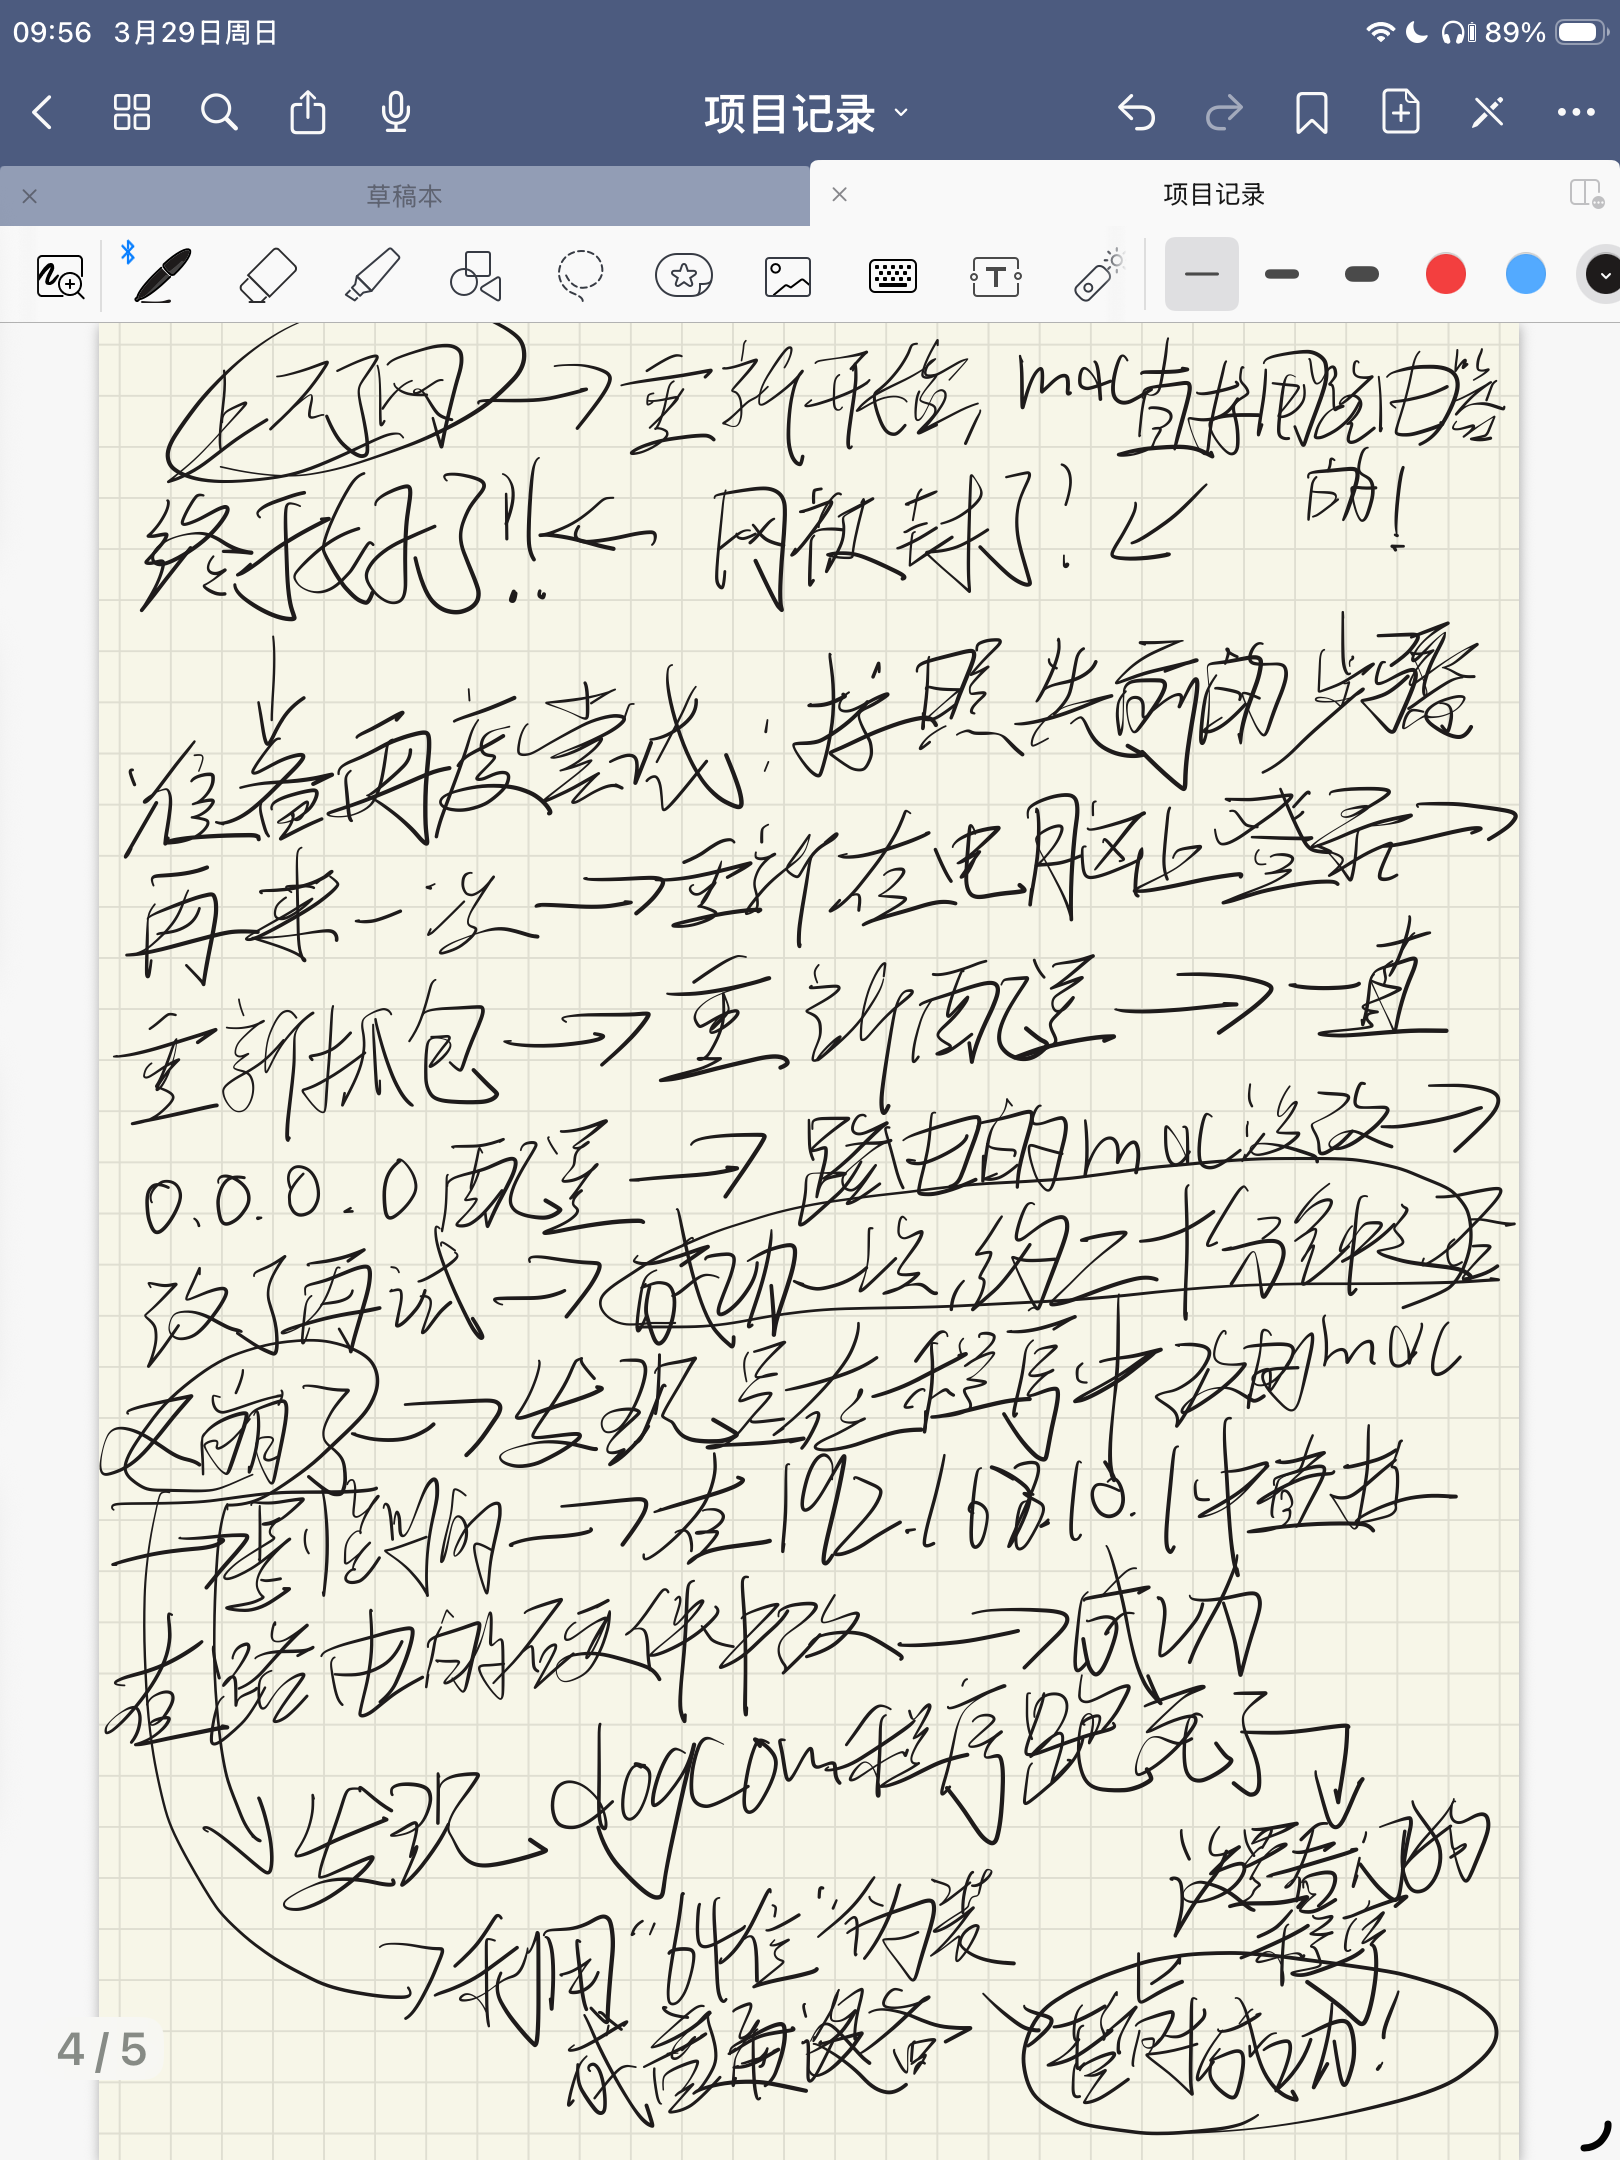 09:56 3月29日周日
89%
项目记录
草稿本
项目记录
上不了网 → 重新开始 mac直接用路由器
的!
终于找好了!! ← 网被封了? ↙
↓
准备再度尝试:按照先前的步骤
再来一次 → 重新在电脑上登录 →
重新抓包 → 重新配置 → 一直
0.0.0.0 配置 → 路由的mac没改 →
改了再试 → 成功一次,约二十分钟之后
又崩了 → 发现是在程序中改的mac
在192.168.10.1中直接
在路由的硬件中改 → 成功
发现 dogcom程序跑完了
没看到的
程序
利用"64位"伪装
成普通设备 → 暂时成功!
4 / 5